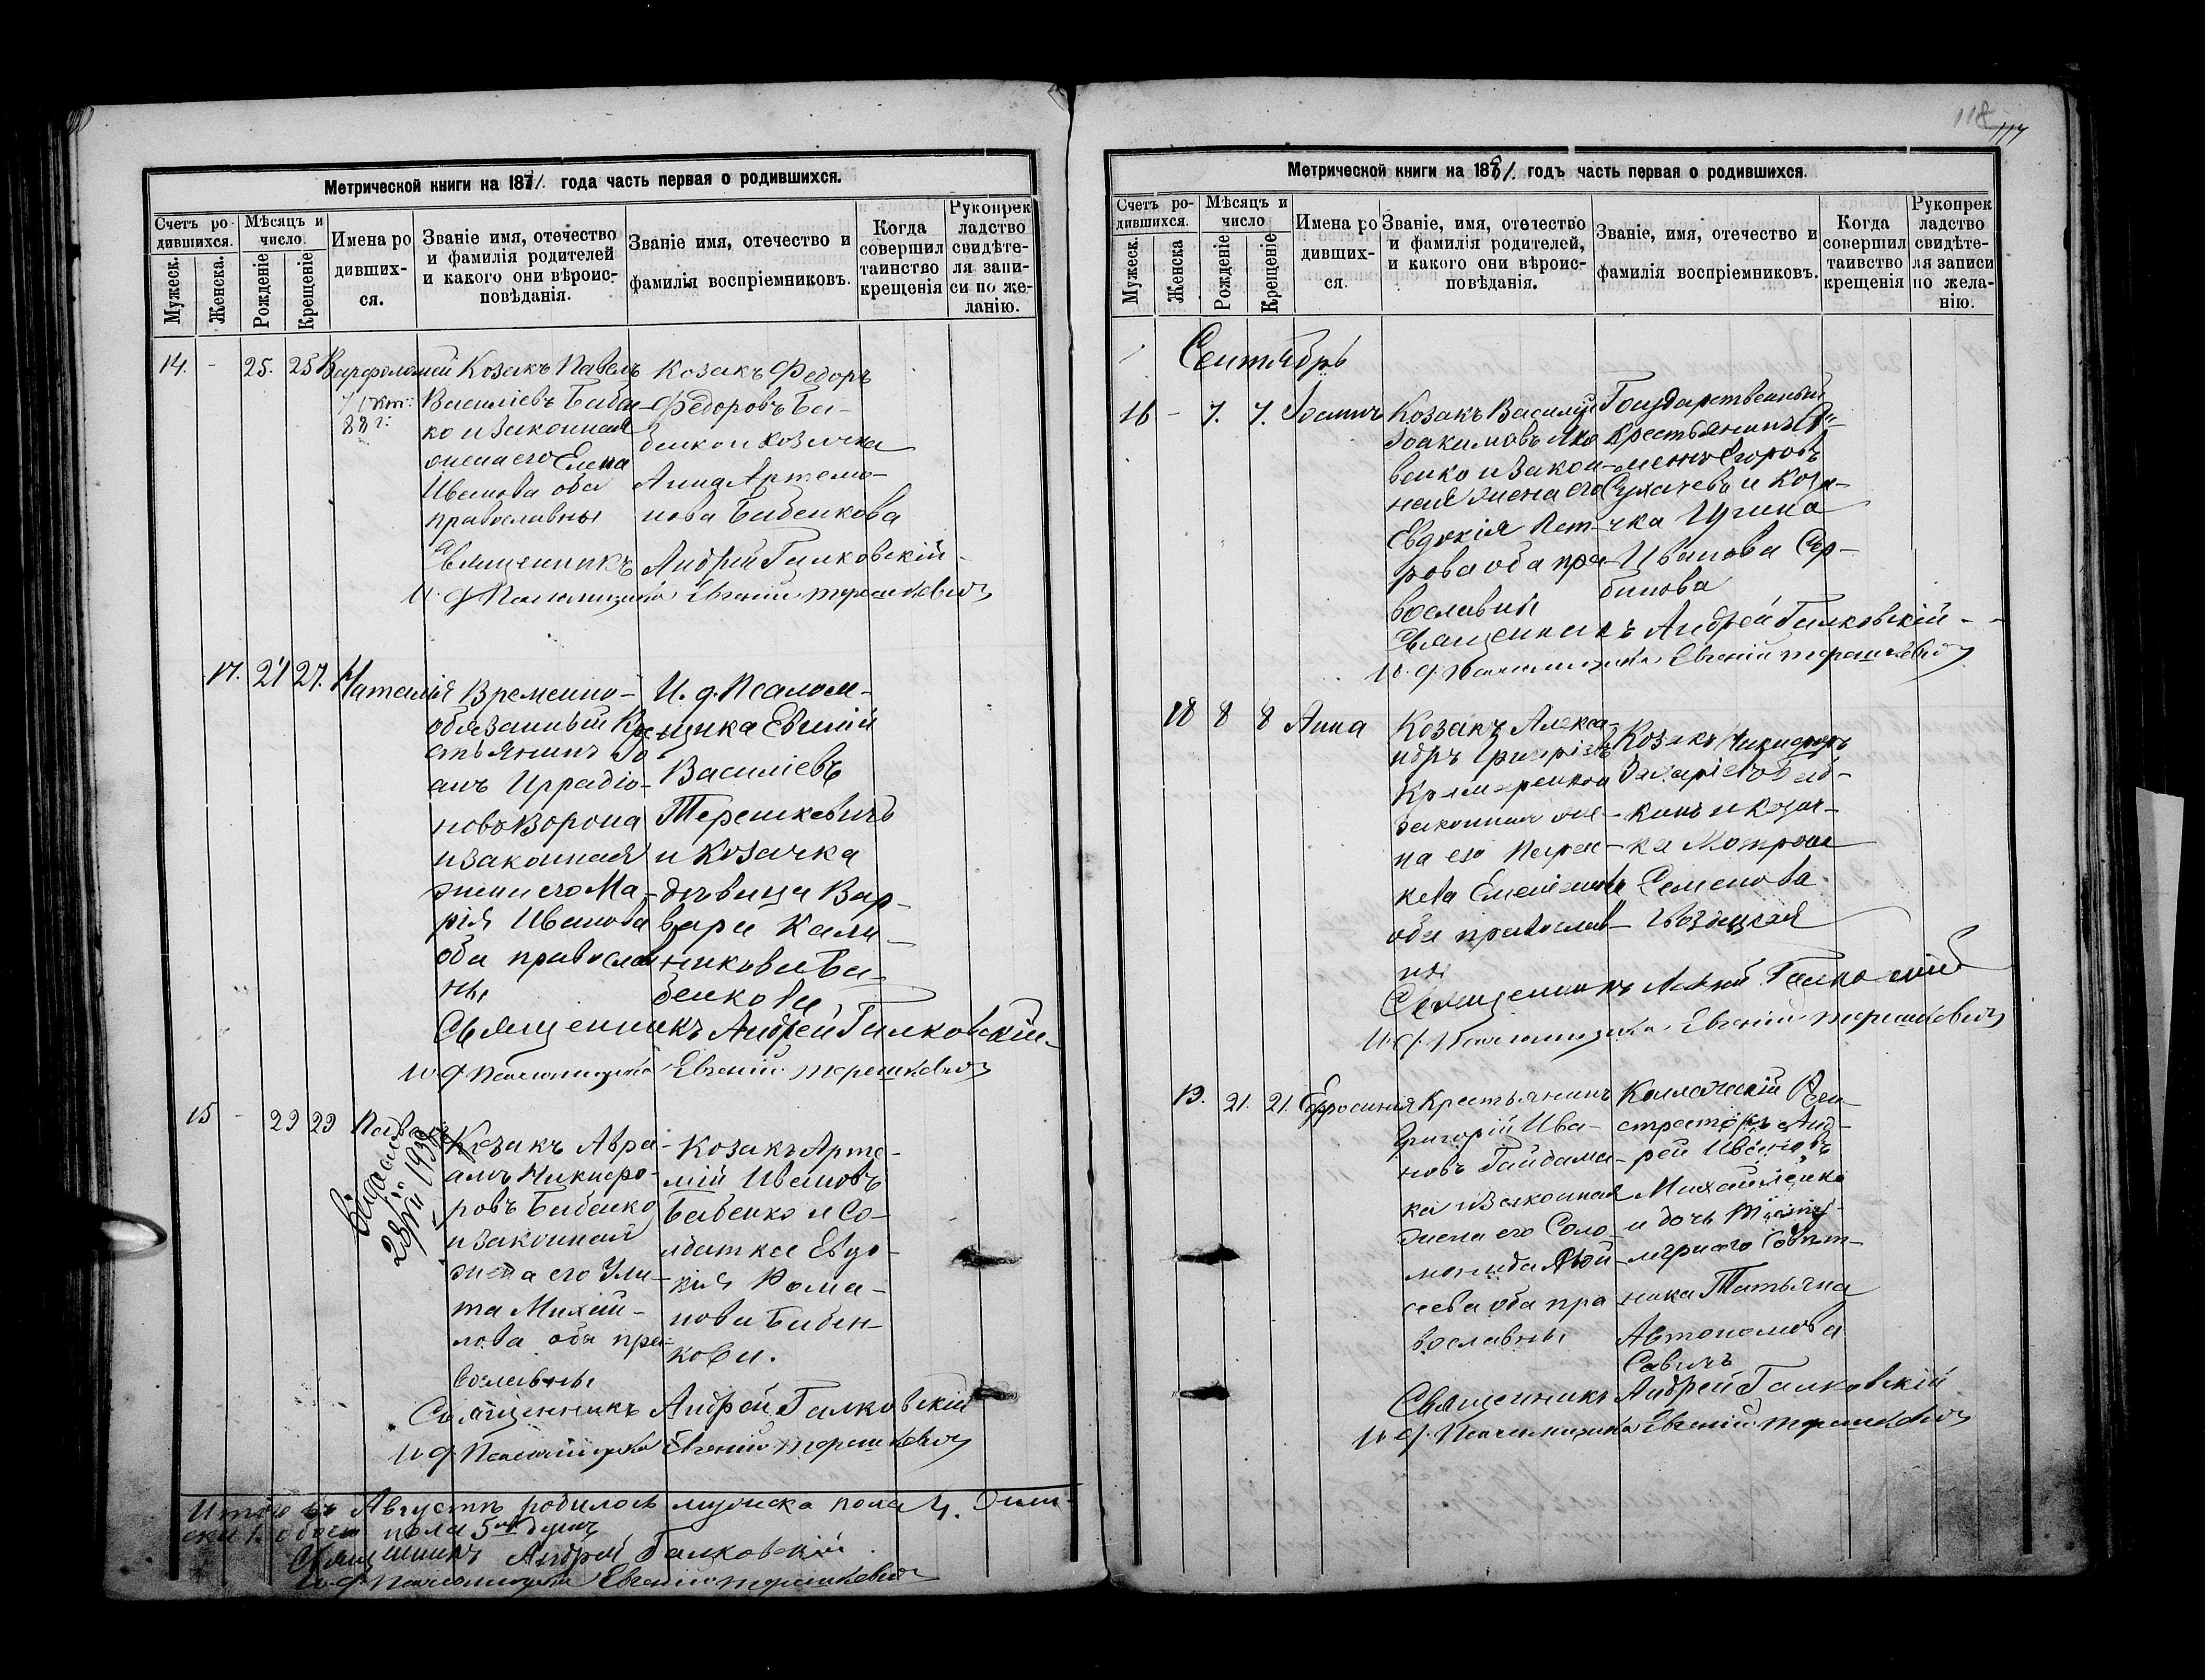 118
117
Метрической книги на 1881. года часть первая о родившихся.
Счетъ ро-
дившихся.
Мужеск.
Женска.
Мѣсяцъ и
число.
Рожденіе
Крещеніе
Имена ро
дивших-
ся.
Званіе имя, отечество
и фамилія родителей
и какого они вѣроис-
повѣданія.
Званіе имя, отечество и
фамилія воспріемниковъ.
Когда
совершил
таинство
крещенія
Рукопрек
ладство
свидѣте-
ля запи-
си по же-
ланію.
14. - 25. 25 Варфоломей
88 г:
Козакъ Павелъ
Василіевъ Бабен-
ко и законная
жена его Елена
Иванова оба
православны
Козакъ Федоръ
Федоровъ Ба-
бенко и козачка
Анна Артемо-
нова Бабенкова
Священникъ Андрей Галковскій
И. д. Псаломщика Евгеній Терешкевичъ
17. 27 27. Наталія
Временно-
обязанный Кре-
стьянинъ Іо
анъ Иррадіо-
новъ Ворона
и законная
жена его Ма-
рія Иванова
оба православ
ны
И. д. Псалом-
щика Евгеній
Василіевъ
Терешкевичъ
и Козачка
дѣвица Вар-
вара Кали-
никова Ба-
бенкова
Священникъ Андрей Галковскій
И. д. Псаломщика Евгеній Терешкевичъ
15 - 29 29 Павелъ
Видано
1938
Козакъ Авра-
амъ Никифо-
ровъ Бабенко
и законная
жена его Ули-
та Михай-
лова оба пра-
вославны
Козакъ Арте-
мій Ивановъ
Бабенко и Со-
лдатка Евдо-
кія Рома-
нова Бабен-
кова.
Священникъ Андрей Галковскій
И. д. Псаломщика Евгеній Терешкевичъ
Итого въ Августѣ родилось мужеска пола 4. жен-
ска 1. обоего пола 5ть душъ
Священникъ Андрей Галковскій
И. д. Псаломщика Евгеній Терешкевичъ
Метрической книги на 1881. годъ часть первая о родившихся.
Счетъ ро-
дившихся.
Мужеск.
Женска
Мѣсяцъ и
число
Рожденіе
Крещеніе
Имена ро
дивших-
ся.
Званіе, имя, отечество
и фамилія родителей,
и какого они вѣроис-
повѣданія.
Званіе, имя, отечество и
фамилія воспріемниковъ.
Когда
совершил
таивство
крещенія
Рукопрек
ладство
свидѣте-
ля записи
по жела-
нію.
Сентябрь
16 - 7. 7. Іоаннъ
Козакъ Василій
Іоакимовъ Яко
венко и Закон-
ная жена его
Евдокія Пет-
рова оба пра-
вославны
Государственный
Крестьянинъ
Егоровъ
и Коза-
чка Ирина
Иванова Сер-
бинова
Священникъ Андрей Галковскій
И. д. Псаломщика Евгеній Терешкевичъ
18 8 8 Анна
Козакъ Алекса-
ндръ Григоріевъ
законная же-
на его Парас-
кева
оба православ-
ны
Козакъ Никифоръ
Захаріевъ
и козач-
ка Мотрона
Семенова
Священникъ Андрей Галковскій
И. д. Псаломщика Евгеній Терешкевичъ
19. 21. 21. Ефросинія
Крестьянинъ
Григорій Ива-
новъ Гайдама-
ка и Законная
жена его Соло-
монида Мои-
сеева оба пра
вославны
Коллежскій Реги-
страторъ Анд-
рей Ивановъ
Михайленко
и дочь Титу-
лярнаго Совѣт-
ника Татьяна
Автономова
Савичъ
Священникъ Андрей Галковскій
И. д. Псаломщика Евгеній Терешкевичъ